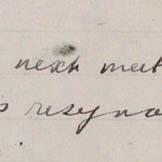 next meet
resigna